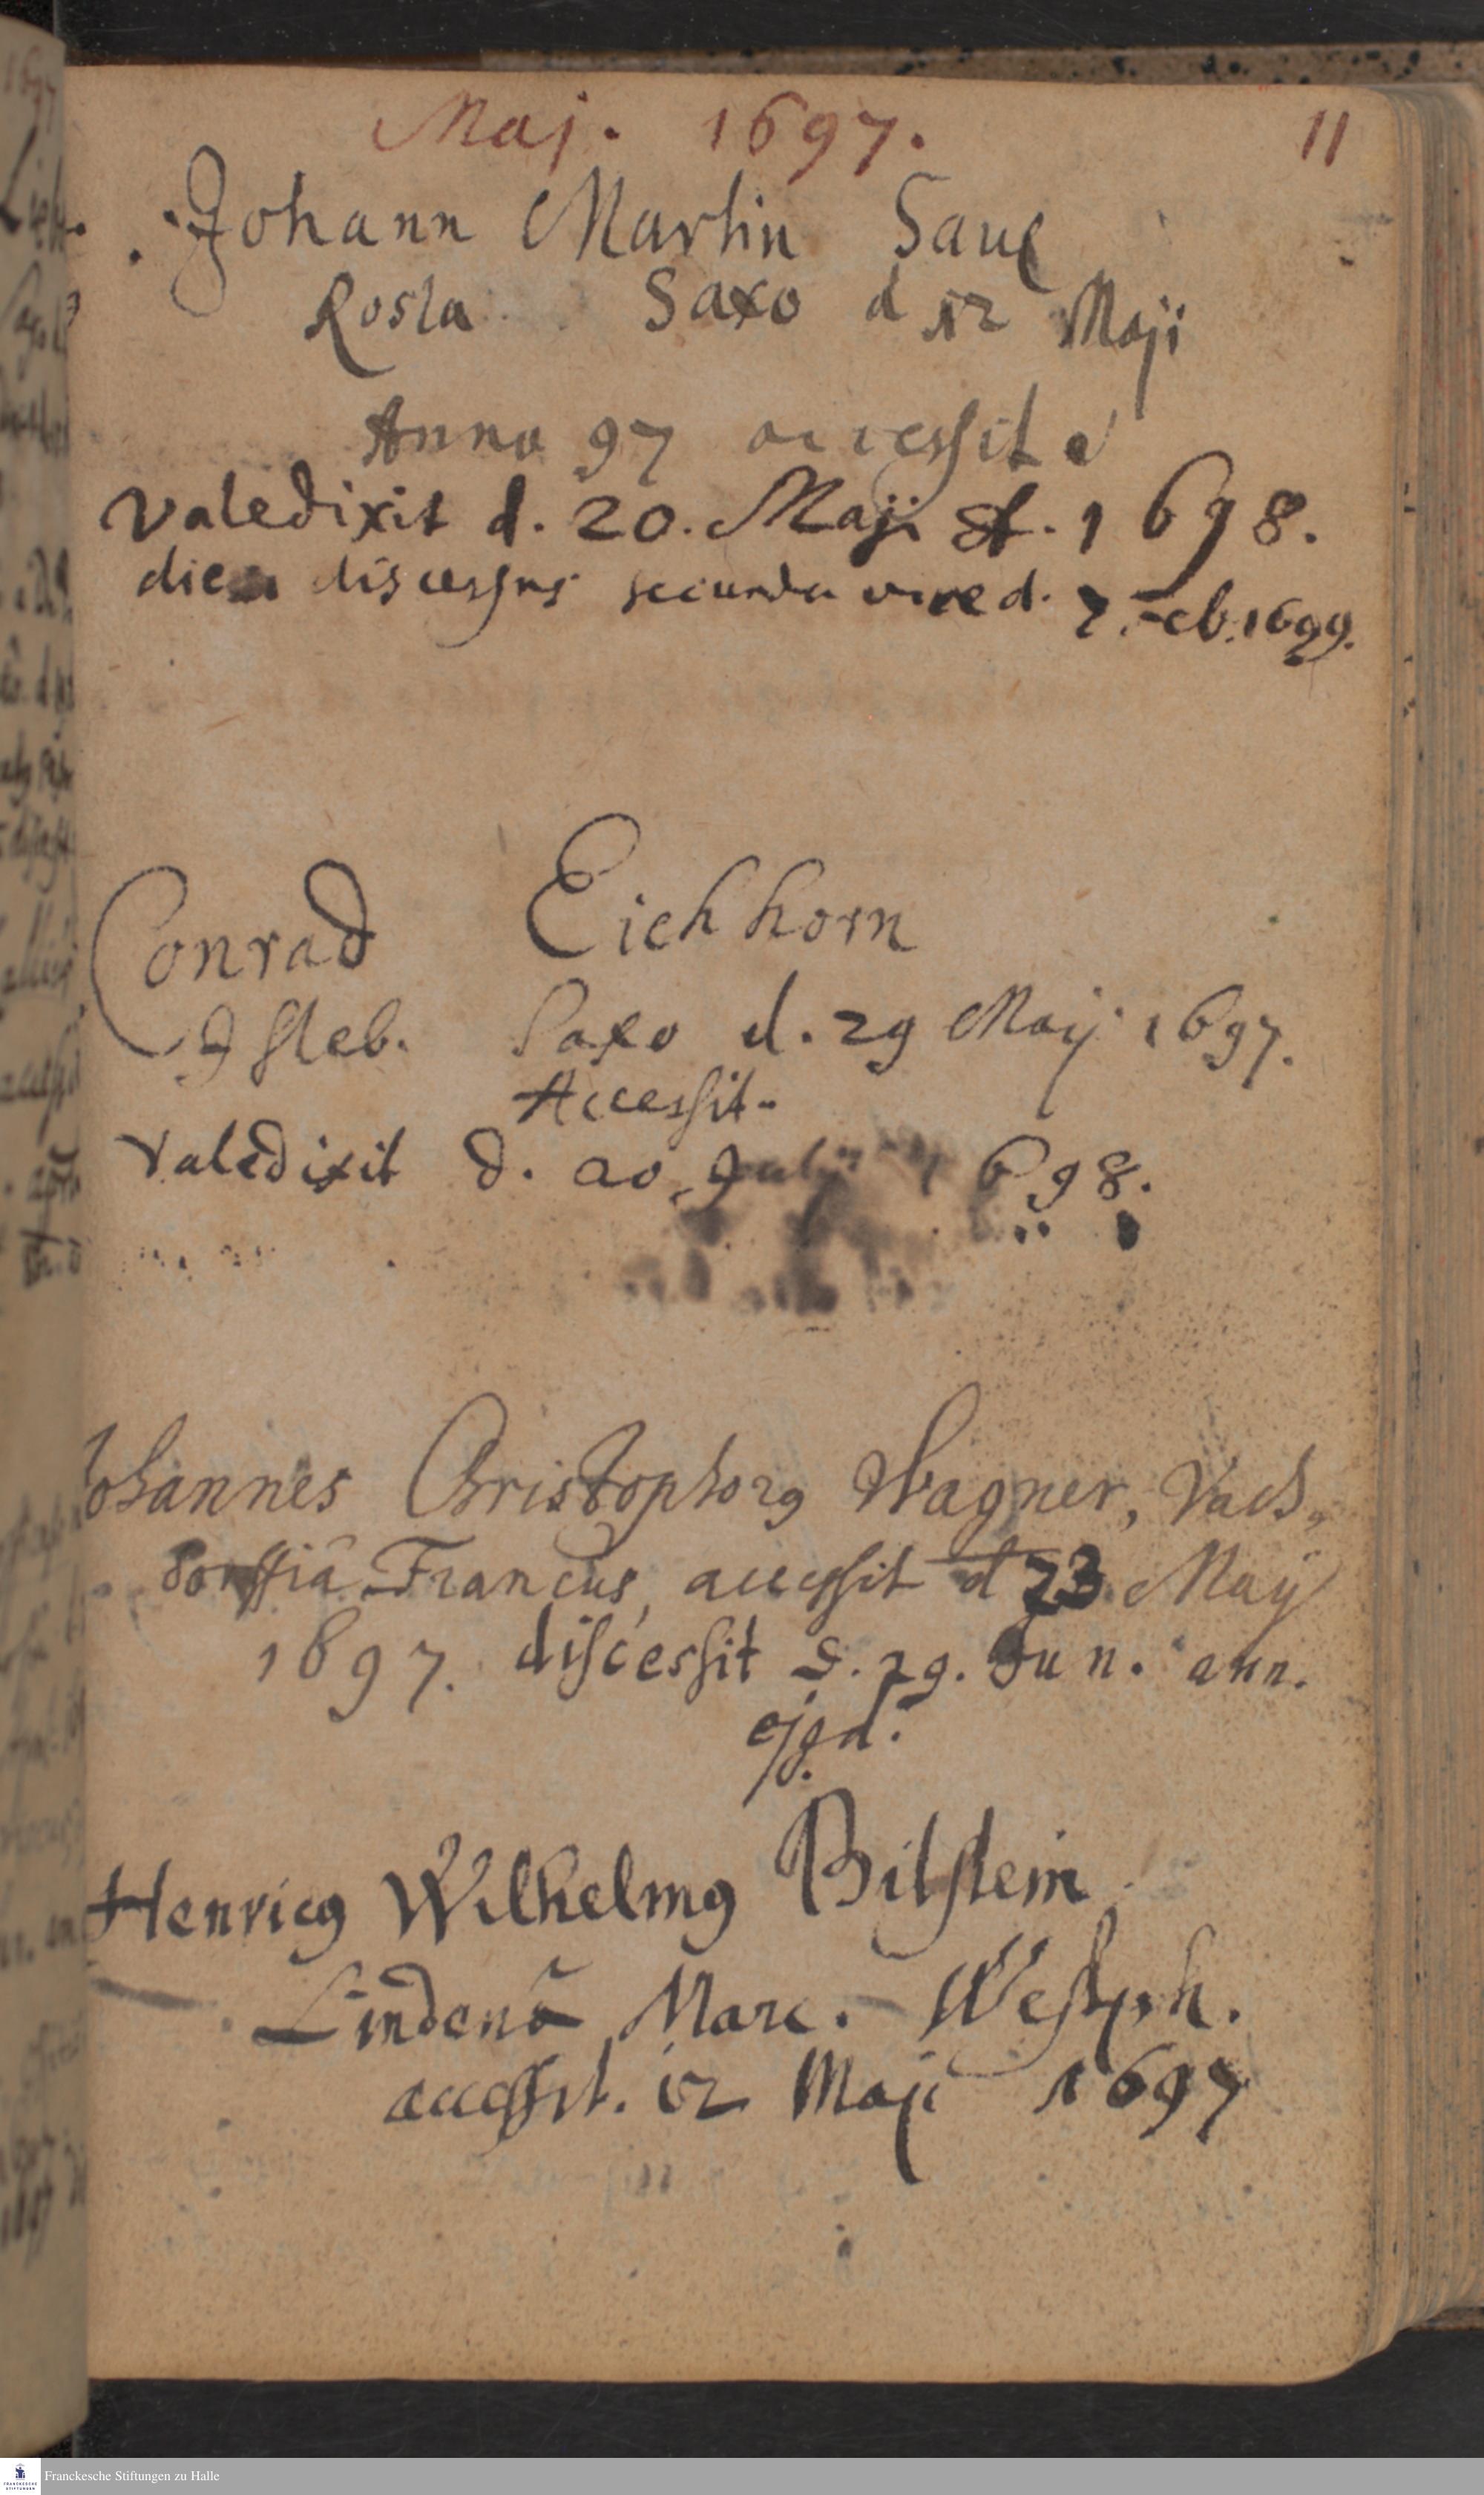 Maj. 1697.
11
Johann Martin Saul
Rosla Saxo d 12 Maji
Anno 97 accessit
valedixit d. 20. Maji st. 1698.
dies discessus secunda vice d. 7. Feb. 1699.
Conrad Eichhorn
Isleb. Saxo d. 29 Maij 1697.
Accessit.
Valedixit d. 20 Julij 1698.
Johannes Christophorꝰ Wagner, Vach,
dorffiâ Francus, accessit d 23. Maij
1697. discessit d. 29. Jun. ann.
ejꝰd.
Henricꝰ Wilhelmꝰ Bilstein
Lindenâ Marc. Westph.
accessit. 12 Maji 1697
Franckesche Stiftungen zu Halle